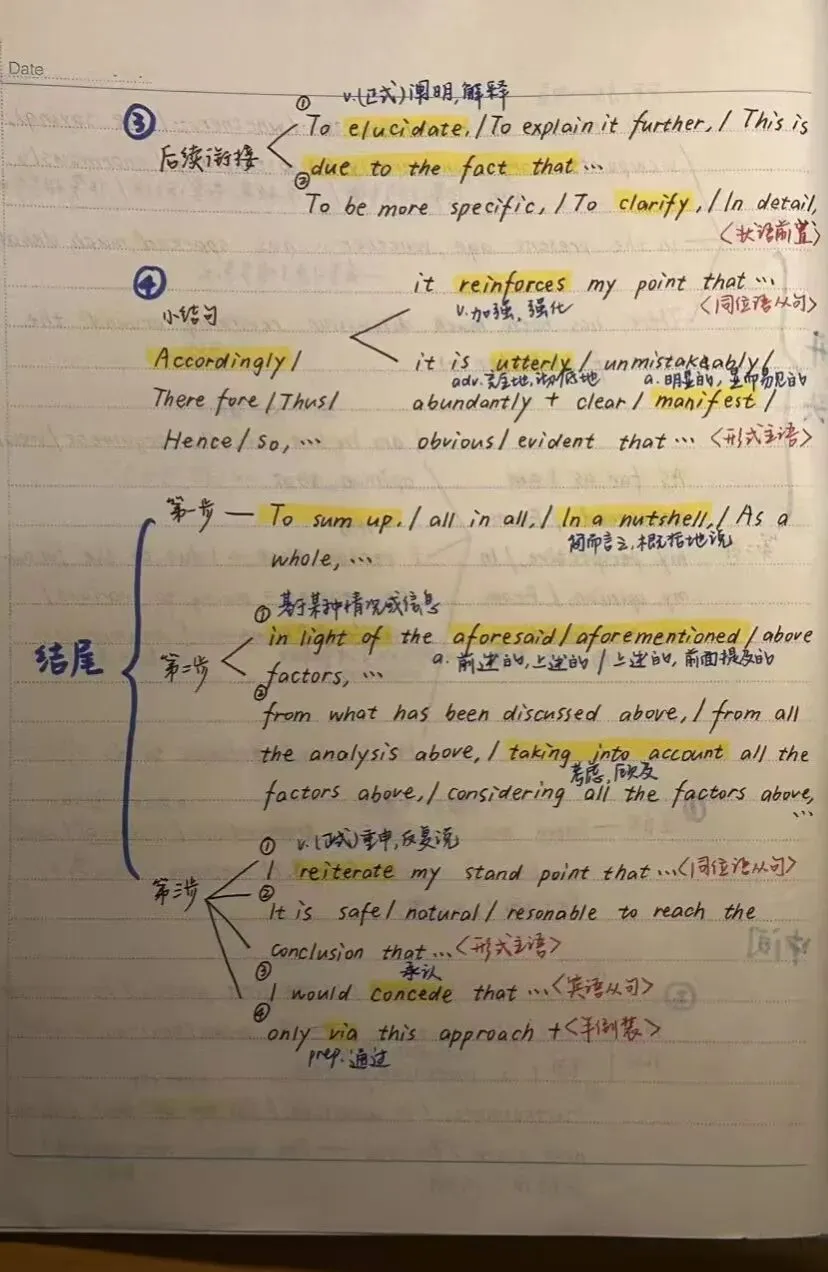 Date
① v.(正式)阐明,解释
③ To elucidate, / To explain it further, / This is
后续衔接 due to the fact that …
② To be more specific, / To clarify, / In detail,
<状语前置>
④ it reinforces my point that …
小结句 v.加强,强化 <同位语从句>
Accordingly / it is utterly / unmistakeably /
adv.完全地,彻底地 a.明显的,显而易见的
There fore / Thus / abundantly + clear / manifest /
Hence / So, … obvious / evident that … <形式主语>
第一步 — To sum up, / all in all, / In a nutshell, / As a
简而言之,概括地说
whole, …
① 基于某种情况或信息
结尾 in light of the aforesaid / aforementioned / above
第二步 a. 前述的,上述的 / 上述的,前面提及的
factors, …
② from what has been discussed above, / from all
the analysis above, / taking into account all the
考虑,顾及
factors above, / considering all the factors above,
…
① v.(正式)重申,反复说
第三步 I reiterate my stand point that …<同位语从句>
② It is safe / natural / resonable to reach the
conclusion that …<形式主语>
③ 承认
I would concede that …<宾语从句>
④ only via this approach + <半倒装>
prep.通过